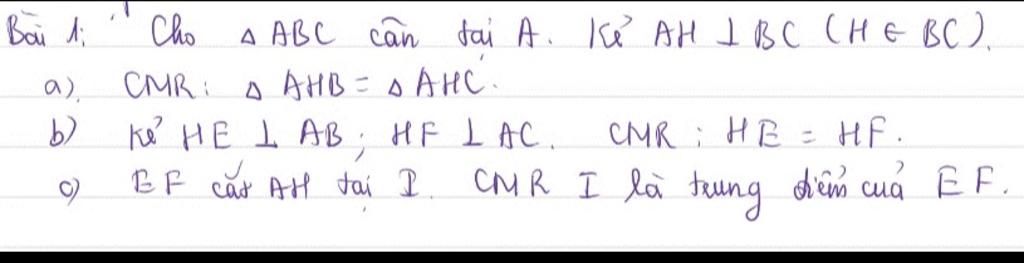 Bài 1: Cho △ ABC cân tại A. Kẻ AH ⊥ BC (H ∈ BC).
a). CMR: △ AHB = △ AHC.
b) Kẻ HE ⊥ AB; HF ⊥ AC. CMR: HE = HF.
c) EF cắt AH tại I. CMR I là trung điểm của EF.